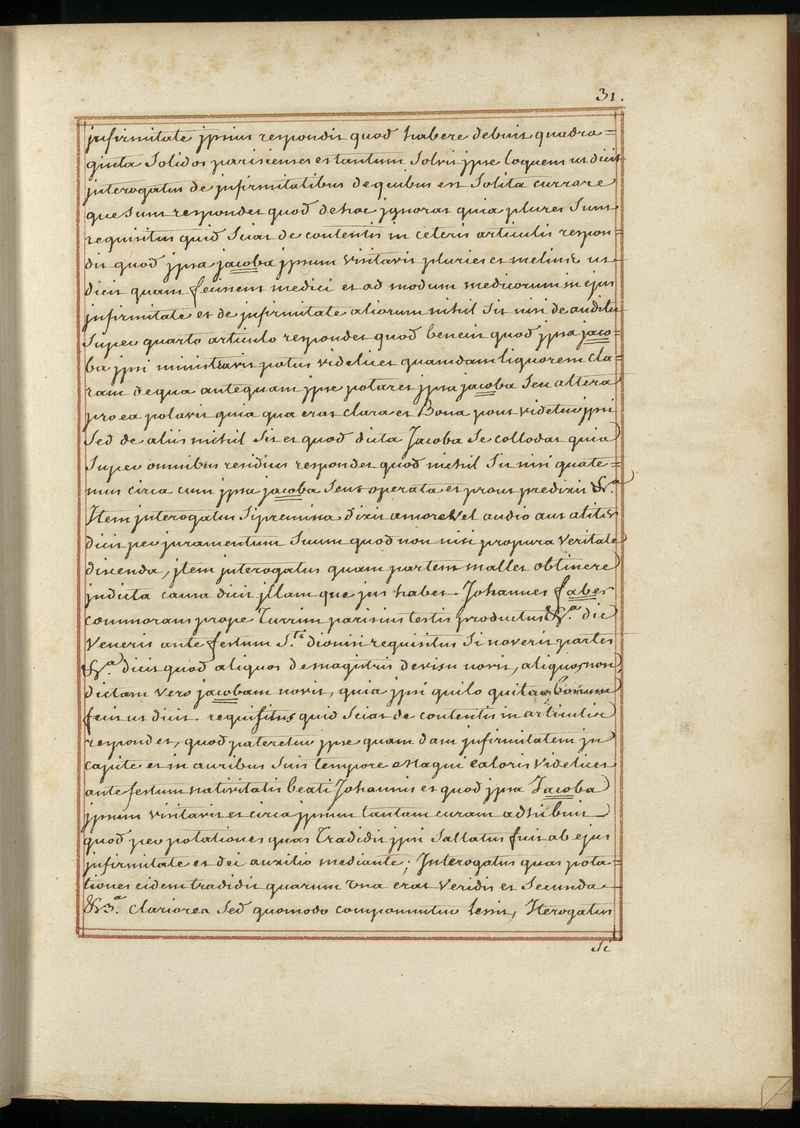 31.
jnfirmitate jpsius respondit quod habere debuit quadra=
ginta Solidos parisienses et tantum Solvit jpse loquens ut dicit
jnterogatus de jnfirmitatibus de quibus est Solita currare
que Sunt respondet quod de hoc jgnorat quia plures Sunt
requisitus quid Sciat de contentis in ceteris articulis respon=
dit quod jpsa jacoba jpsum visitavit pluries et melius ut
dicit quam fecissent medici et ad modum medicorum in ejus
jnfirmitate et de jnfirmitate aliorum nihil Sit nisi de auditu
Super quarto articulo respondet quod bene quod jpsa jaco=
ba jpsi ministravit potus videlicet quamdam liquorem cla=
ram de qua antequam jpse potaret jpsa jacoba Seu altera
pro ea potavit quia qua erat clara et Bona prout videtur jpsi
Sed de aliis nichil Sit et quod dicta Jacoba Se collodat quia
Super omnibus residuis respondet quod nichil Sit nisi quate=
nus circa eum jpsa jacoba operata et prout predixit &.a
Jtem jnterogatus Si premissa dixit amore vel audio aut aliter
dicit per juramentum Suum quod non nisi pro pura veritate
dicenda, jtem jnterogatus quam partem mallet obtinere
jn dicta causa dicit jllam que jus habet. Johannes faber
commorans prope Turrim parisius testis productus &.a die
Veneris ante festum S.ti dionisi requisitus Si noverit partes
&.a dicit quod aliquos de magistris de visu novit, aliquos non
dictam vero jacobam novit, quia jpsi bonum
fecit ut dicit. requisitus quid Sciat de contentis in articulis
respondet, quod pateretur jpse quamdam jnfirmitatem jn
capite et in auribus Suis tempore Magni caloris videlicet
ante festum nativitatis beati Johannis et quod jpsa Jacoba
jpsum visitavit et circa jpsum tantam curam adhibuit
quod per potationes quas Tradidit jpsi Sallatus fuit ab ejus
jnfirmitate et dei auxilio mediante; Jnterogatus quas pota=
tiones eidem tradidit quarum una erat Veridis et Secunda
&3.a clariorea Sed quomodo componuntur Jterogatus
Si